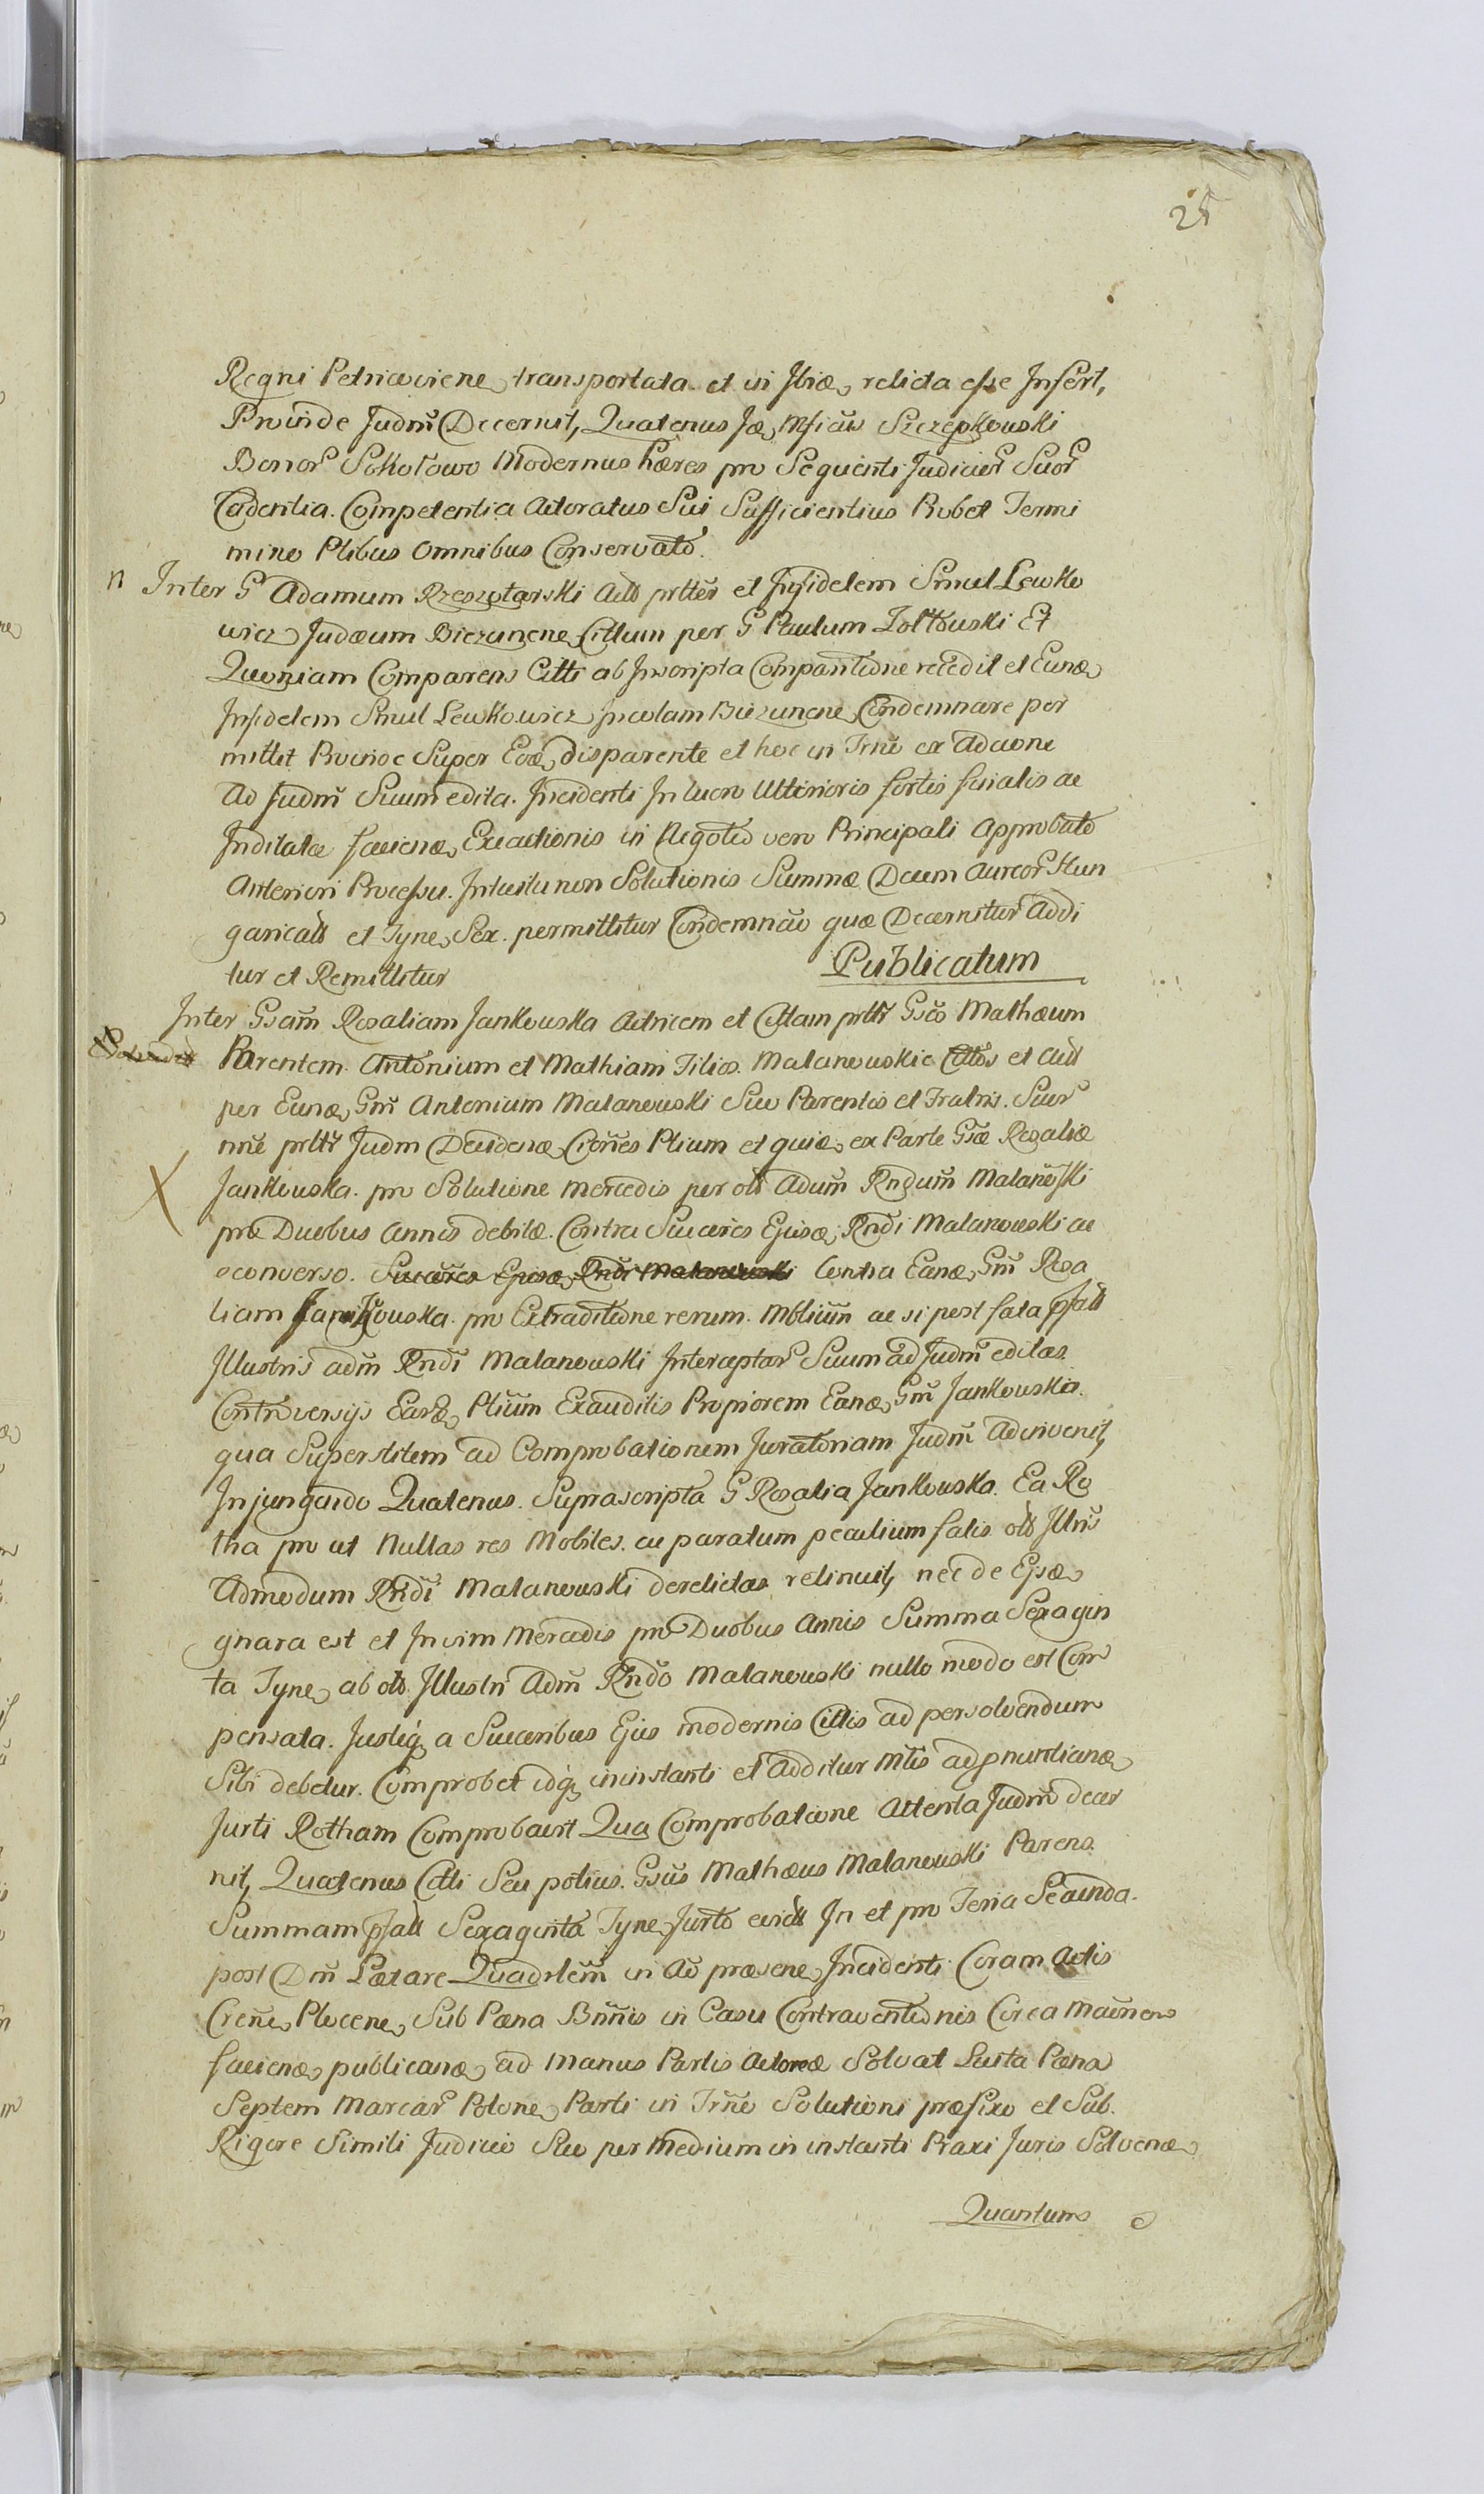 25
Regni Petricoviene transportata. et in Ibiæ relicta esse Insert,
Proinde Judm̃ Decernit, Quatenus Mficus Szczepkowski
Bonor Sokołowo Modernus hæres pro Sequenti Judicior Suor
Cadentia. Competentia Actoratus Sui Sufficientius Probet Termi
mino Ptibus Omnibus Conservato.
n Inter G Adamum Rzeszotarski prtter et Infidelem Smul Lewko
wicz Judæum Biezunene Cittum per G Paulum Zołtowski Et
Quoniam Comparens Citti ab Inscripta Comparitione recedit et Eunæ
Infidelem Smul Lewkowicz Incolam Biezunene Condemnare per
mittit Proinde Super Eoæ disparente et hoc in Trnẽ ex Actione
Ad Judm̃ Suum edita. Incidenti In lucro Ulterioris fortis ferialis ac
Inditatæ faciense Exactionis in Negotio vero Principali Approbato
Anteriori Processu. Intuitu non Solutionis Summæ Decem Aureor Hun
garicall et Tyne, Sex. permittitur Condemnão quæ Decernitur Addi
tur et Remittitur
Publicatum
Inter Gsam̃ Rosaliam Jankowska Actricem et Cittam prttr Gsõs Mathæum
Parentem. Antonium et Mathiam Filios. Malanowskie Cittos et
per Eunæ Gm̃ Antonium Malanowski Suo Parentis et Fratris. Suor
nñe prttr Judm Decidenæ Cionẽs Ptium et quiæ ex Parte Gsæ Rosaliæ
Jankowska. pro Solutione mercedis per olb Adum̃ Rndum̃ Malanowski
præ Duobus annis debitæ. Contra Succres Ejusæ Rndi Malanowski ac
econverso. Succres Ejusæ Rndi Malanowski Contra Eanæ Gm̃ Rosa
liam Jankowska. pro Extraditione rerum. Mblium̃ ac si post fata pfatt
Illustris adm̃ Rndi Malanowski Interceptar Suum ad Judm̃ editas.
Controversijs Earæ Ptium̃ Exauditis Propiorem Eanæ Gm̃ Jankowska.
qua Superstitem ad Comprobationem Juratoriam Judm̃ Adinvenit,
Injungendo Quatenus. Suprascripta G Rosalia Jankowska. Ea Ro
tha pro ut Nullas res Mobiles. ac paratum peculium fatis olb Illris
Admodum Rndi Malanowski derelictas retinuit, nec de Ejsæ
gnara est et In vim Mercedis pro Duobus Annis Summa Sexagin
ta Tyne, ab olb. Illustri Adm̃ Rndo Malanowski nullo modo est Com
pensata. Justeq a Succribus Ejus modernis Cittis ad persolvendum
Sibi debetur. Comprobet idq in instanti et Additur Mtis ad pnuntianæ
Jurti Rotham Comprobavit Qua Comprobatione Attenta Judm̃ decer
nit, Quatenus Citti Seu potius. Gsus Mathæus Malanowski Parens.
Summam pfatt Sexaginta Tyne, Jurto In et pro Feria Secunda.
post Dm̃ Lætare Quadrlem̃ in Aõ præsene, Incidenti Coram Actis
Crẽn, Plocene, Sub Pæna Bnñis in Casu Contraventionis Circa
faciense publicanæ ad manus Partis Actoreæ Solvat Luita Pæna
Septem Marcar Polone, Parti in Trñe Solutioni præfixo et Sub.
Rigore Simili Judicio Suo per Medium in instanti Praxi Juris Solvenæ
Quantum